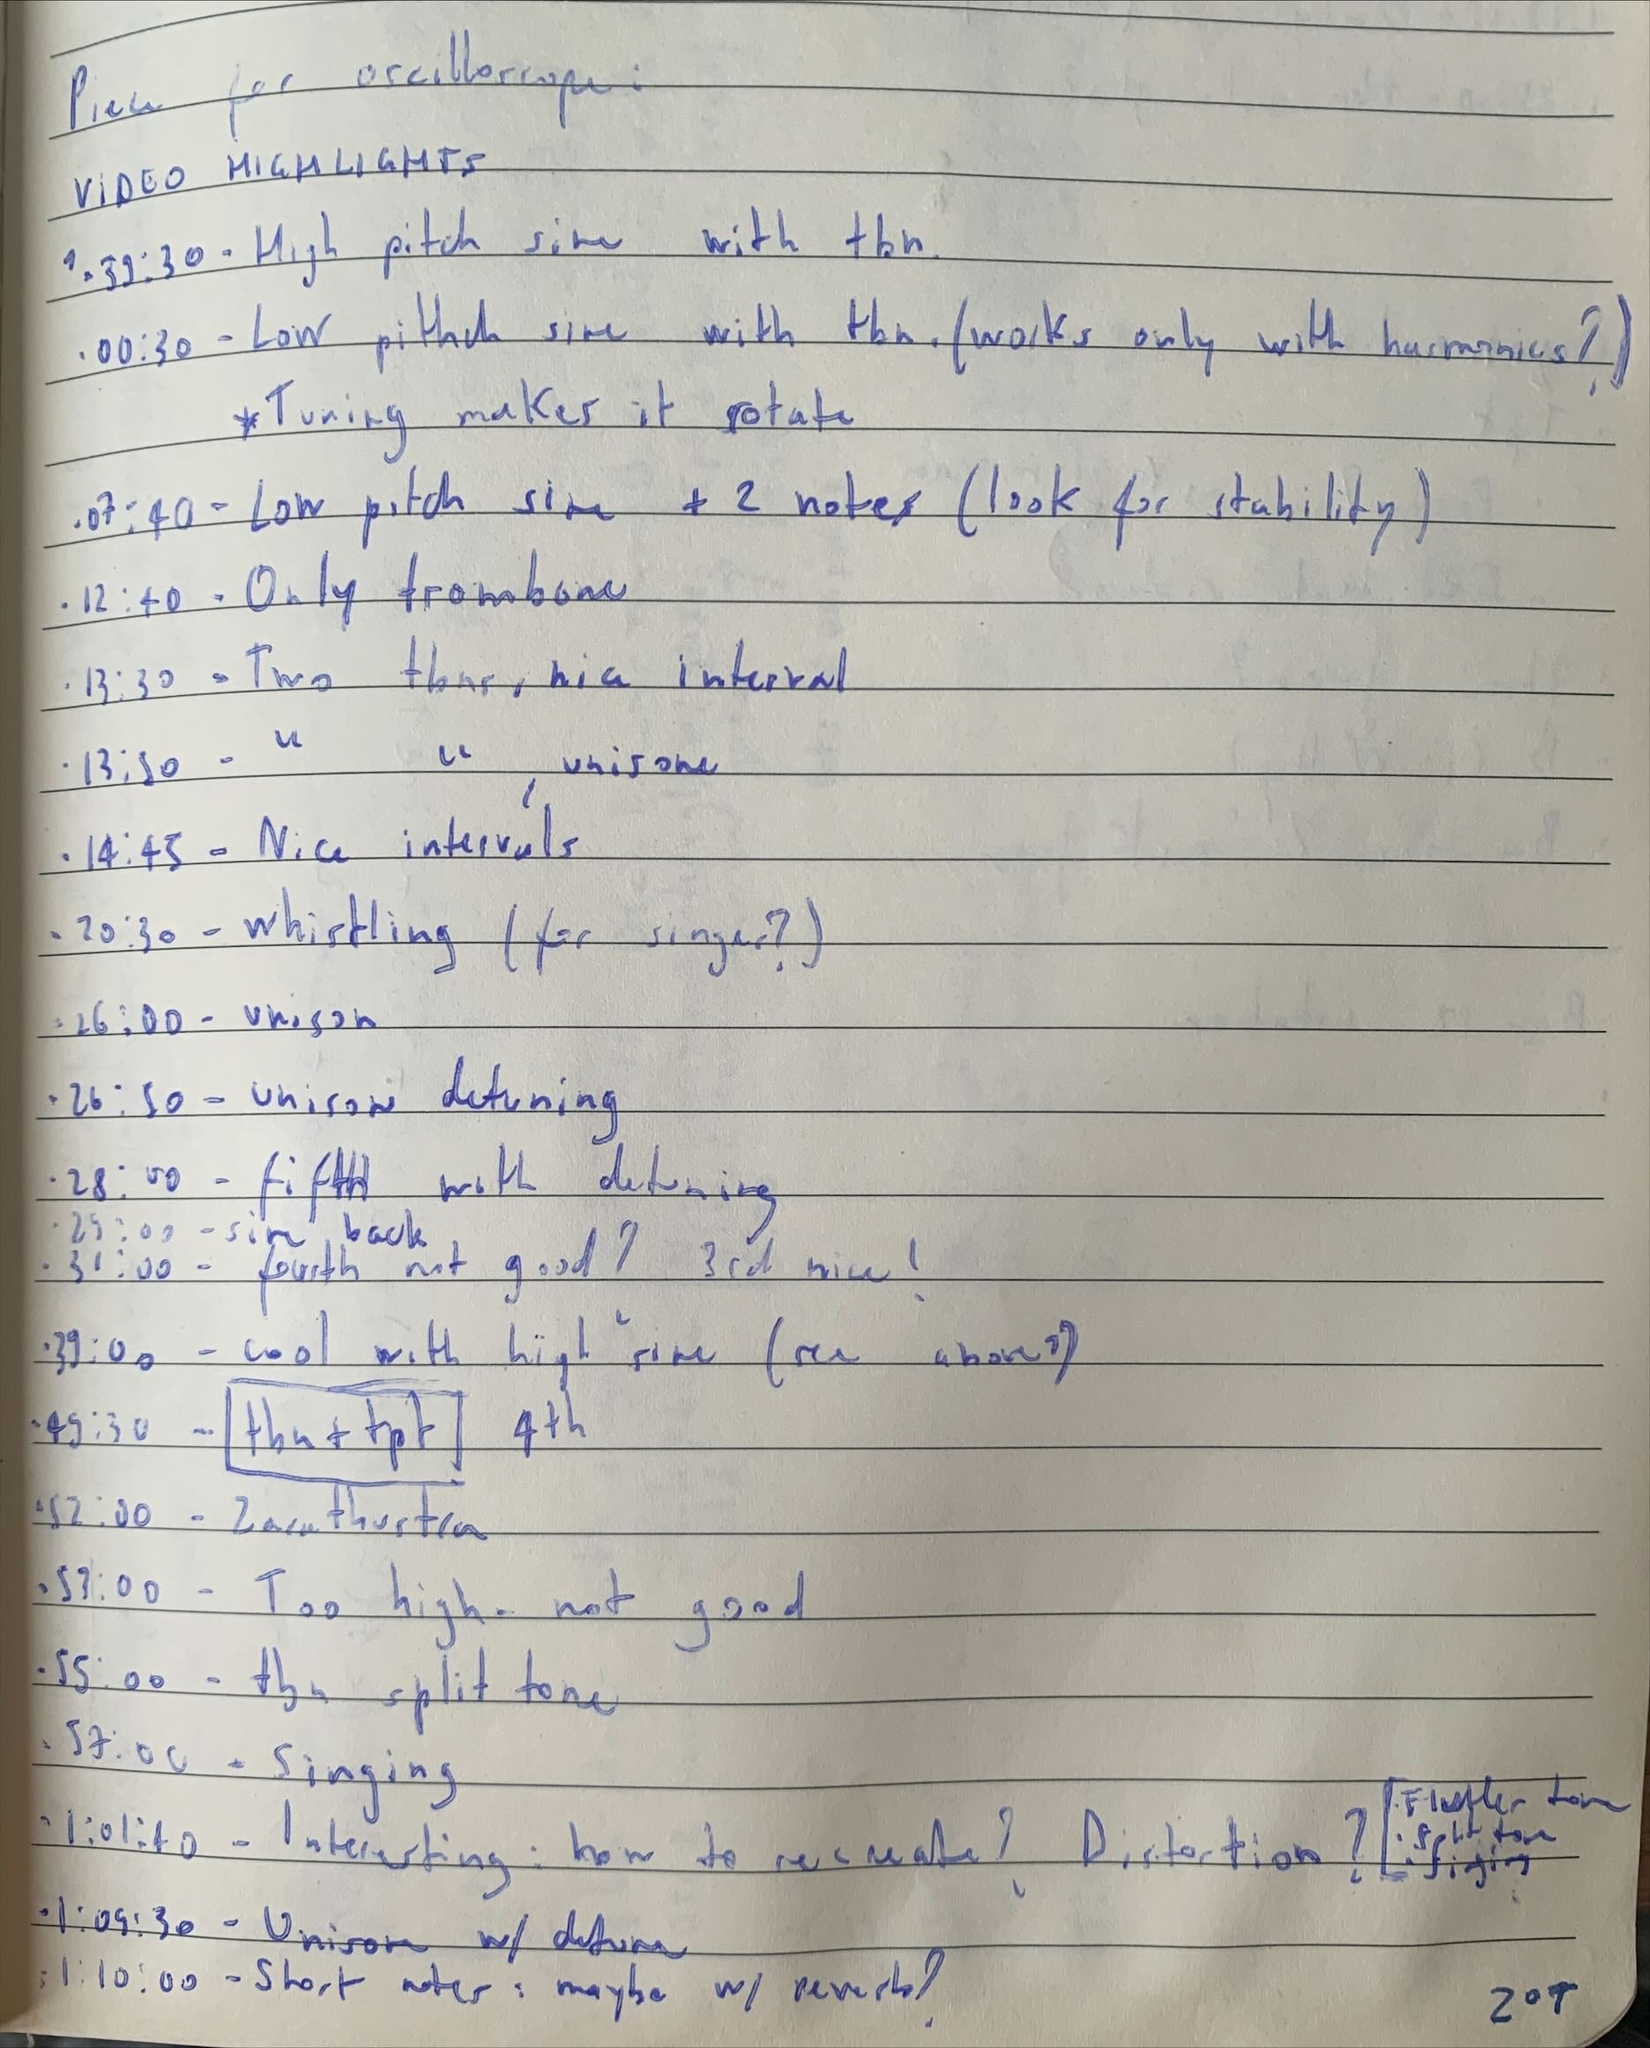 Piece for oscilloscope:
VIDEO HIGHLIGHTS
39:30 - High pitch sine with tbn.
.00:30 - Low pithch sine with tbn. (works only with harmonics?)
*Tuning makes it rotate
.07:40 - Low pitch sine + 2 notes (look for stability)
.12:40 - Only trombone
.13:30 - Two tbns, nice interval
.13:50 - " " , unisone
.14:45 - Nice intervals
.20:30 - Whistling (for singer?)
.26:00 - unison
.26:50 - unison detuning
.28:00 - fifth with detuning
.29:00 - sine back
.31:00 - fourth not good? 3rd nice!
.39:00 - cool with high sine (see above?)
.49:30 - [tbn + tpt] 4th
.52:00 - Zarathustra
.53:00 - Too high - not good
.55:00 - tbn split tone
.57:00 - Singing
.1:01:40 - Interesting: how to recreate? Distortion?
. Flutter tone
. split tone
. singing
.1:09:30 - Unisone w/ detune
.1:10:00 - Short notes: maybe w/ reverb?